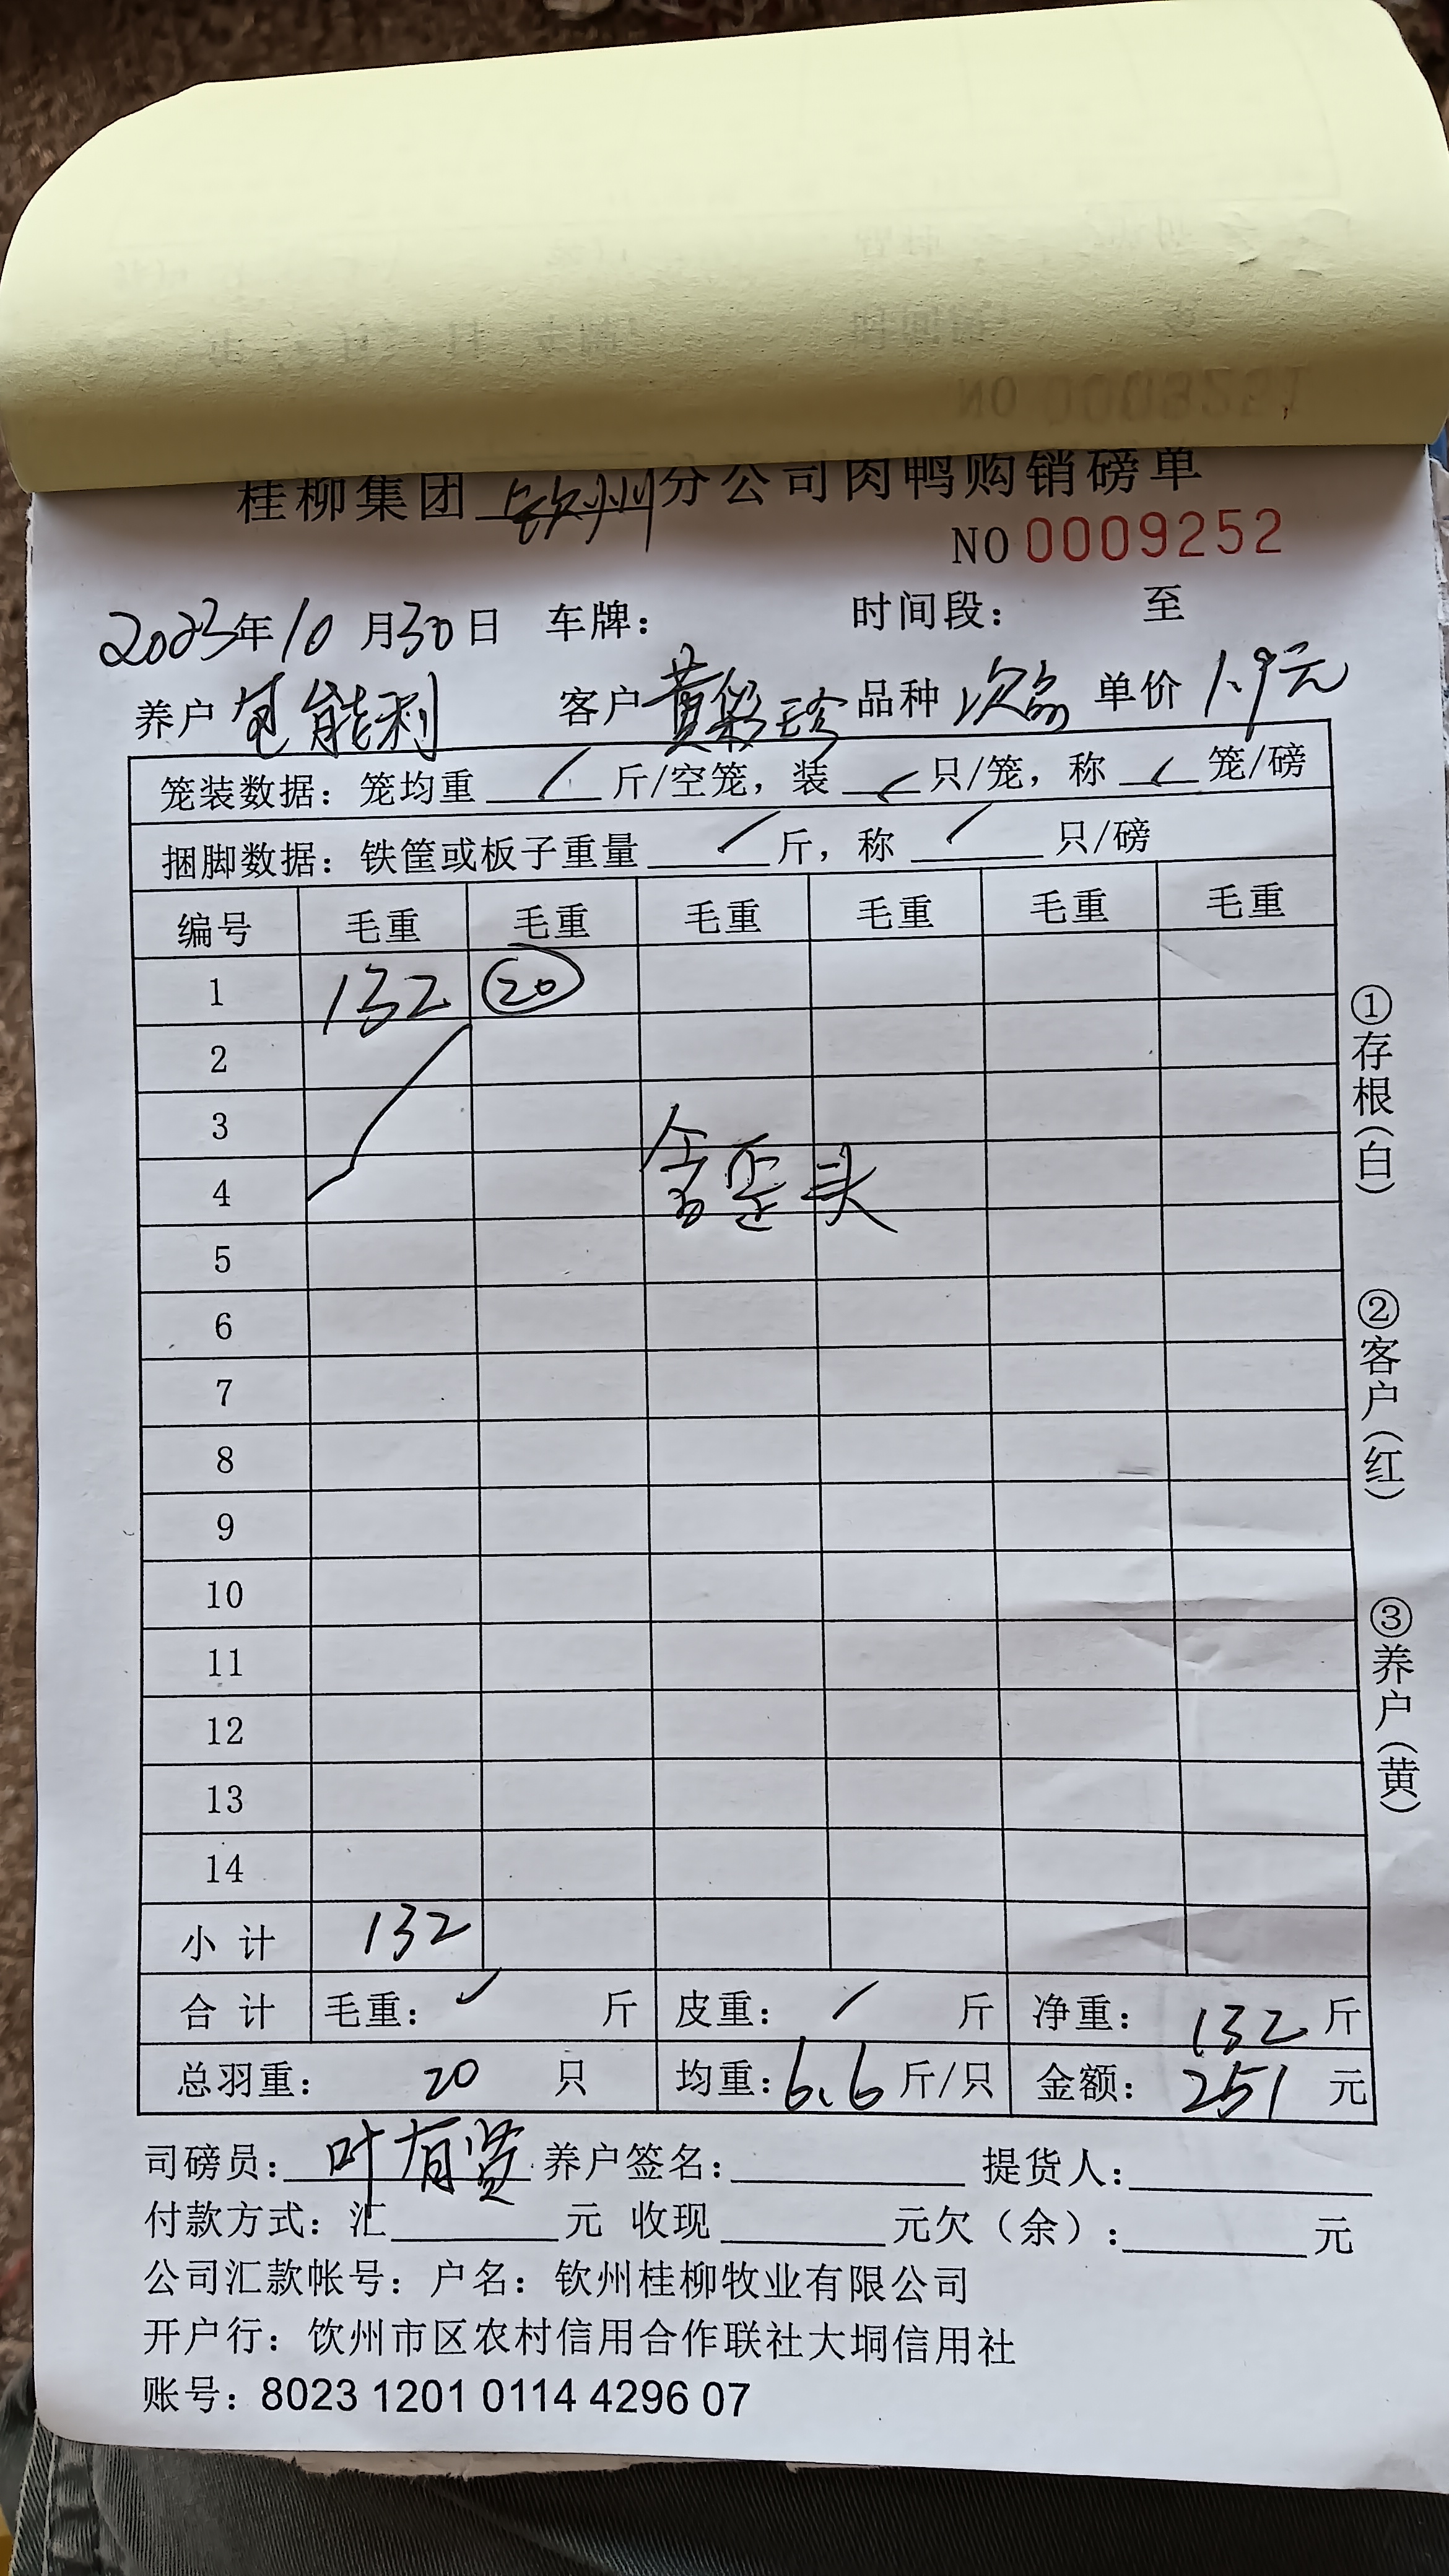 桂柳集团 钦州 分公司肉鸭购销磅单
NO 0009252
2023年10月30日 车牌： 时间段： 至
养户 包能利 客户 黄彩珍 品种 次品 单价 1.9元
笼装数据：笼均重 / 斤/空笼，装 / 只/笼，称 / 笼/磅
捆脚数据：铁筐或板子重量 / 斤，称 / 只/磅
编号 毛重 毛重 毛重 毛重 毛重 毛重
1 132 ⑳
2
3
4
歪头
5
6
7
8
9
10
11
12
13
14
小计 132
合计 毛重： 斤 皮重： / 斤 净重： 132 斤
总羽重： 20 只 均重：6.6 斤/只 金额： 251 元
司磅员： 叶有贤 养户签名： 提货人：
付款方式：汇 元 收现 元欠（余）： 元
公司汇款帐号：户名：钦州桂柳牧业有限公司
开户行：钦州市区农村信用合作联社大垌信用社
账号：8023 1201 0114 4296 07
①存根（白）
②客户（红）
③养户（黄）